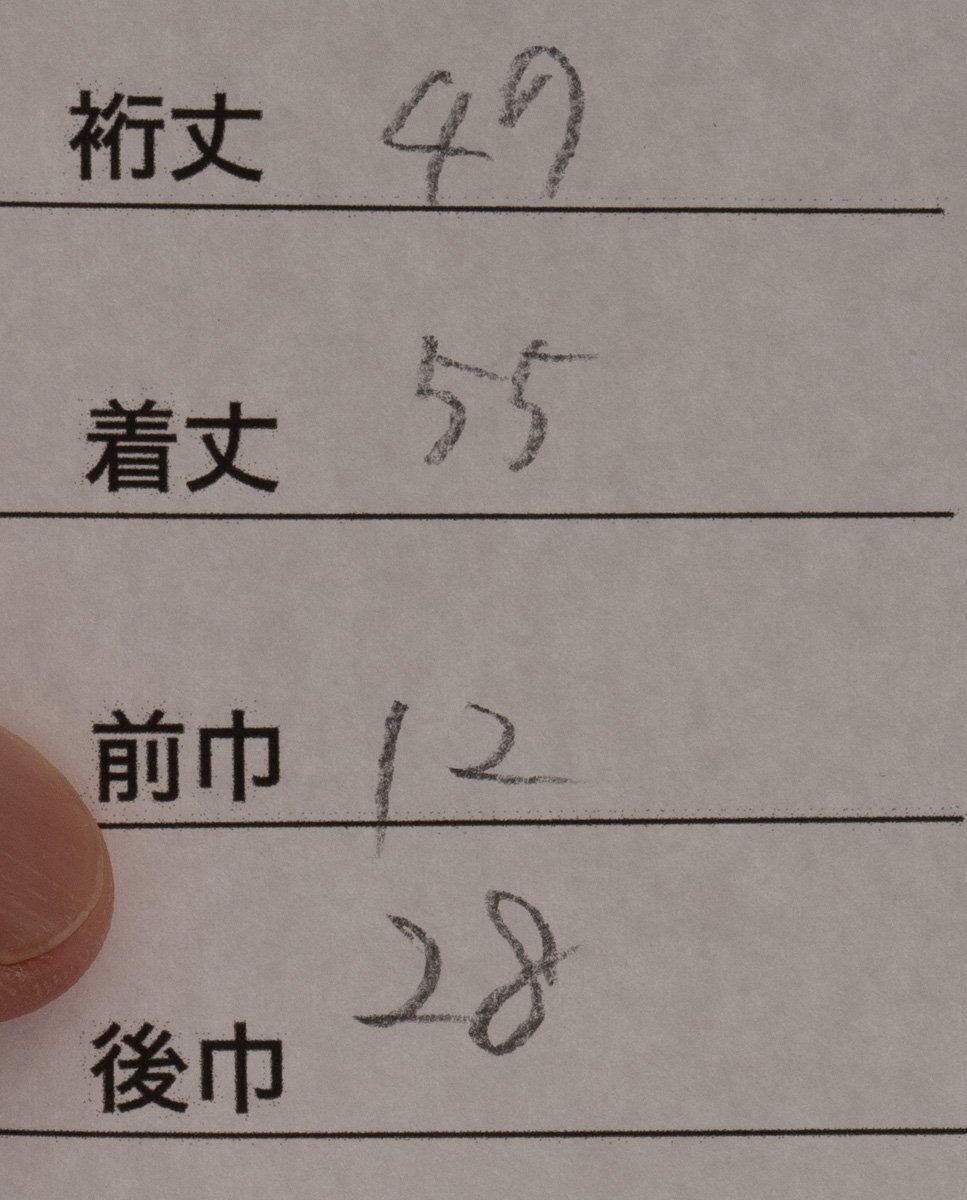 裄丈 49
着丈 55
前巾 12
後巾 28